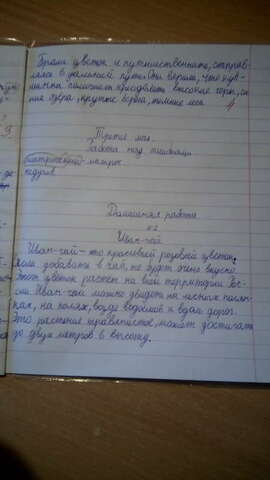 Брали цветок и путешественник, отправ-
лялся в дальний путь. Они верили, что кув-
шинка помогает преодолеть высокие горы, си-
ние озёра, крутые берега, тёмные леса.
4
Третье мая.
Работа под
матрос
Домашняя работа
Иван-чай
Иван-чай - это красивый розовый цветок,
если добавить в чай, то будет очень вкусно.
Этот цветок растёт на всей территории Рос-
сии. Иван-чай можно увидеть на лесных полян-
ках, на полях, возле водоёмов и вдоль дорог.
Это растение травянистое, может достигать
до двух метров в высоту.